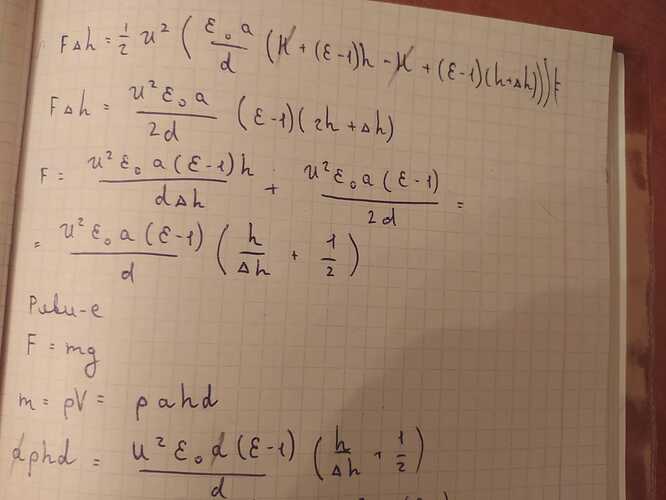 F Δh = 1/2 u² ( ε₀ a / d (H + (ε-1)h - H + (ε-1)(h+Δh)))
F Δh = u² ε₀ a / 2d (ε-1)(2h + Δh)
F = u² ε₀ a (ε-1) h / d Δh + u² ε₀ a (ε-1) / 2d =
= u² ε₀ a (ε-1) / d ( h / Δh + 1/2 )
F = mg
m = ρV = ρ a h d
a ρ h d = u² ε₀ a (ε-1) / d ( h / Δh + 1/2 )